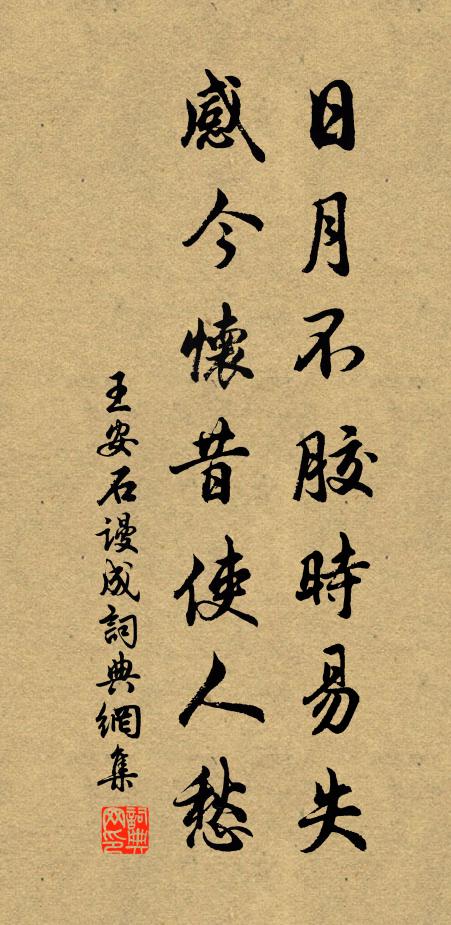 日月不胶時易失
感今懷昔使人愁
王安石謾成詞典網集
詞典网印